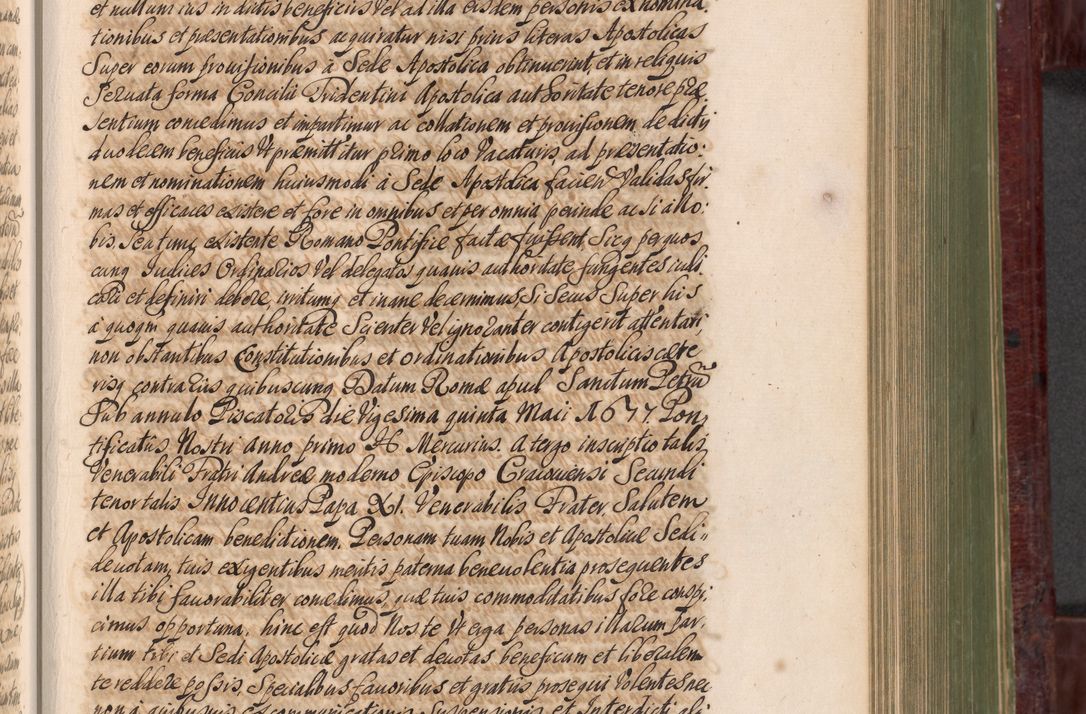 et nullum ius in dictis beneficiis vel ad illa eisdem personis ex nomina,
tionibus et præsentationibus acquiratur nisi prius literas Apostolicas
Super eorum provisionibus à Sede Apostolica obtinuerint, et in reliquis
Servata forma Concilii Tridentini Apostolica authoritate tenore præ
sentium concedimus et impartimur ac collationem et provisionem de dictis
duodecim beneficiis Ut præmittitur primo loco Vacaturis, ad præsentatio:
nem et nominationem huiusmodi à Sede Apostolica facien Validas fir
mas et efficaces existere et fore in omnibus et per omnia perinde ac si a No:
bis, seu tunc existente Romano Pontifice factæ fuissent Sicq per quos
cunq Judices Ordinarios Vel delegatos quavis authoritate fungentes iudi
cari et definiri debere, irritumq et inane decernimus Si Secus Super his
à quoqm quavis authoritate Scienter Vel ignoranter contigerit attentari,
non obstantibus Constitutionibus et ordinationibus Apostolicis cæte
risq contrariis quibuscunq Datum Romæ apud Sanctum Petrū
Sub annulo Piscatoris die Vigesima quinta Maii 1677. Pon,
tificatus Nostri Anno primo Mercurius. A tergo inscriptio talis
Venerabili Fratri Andreæ moderno Episcopo Cracoviensi Secundi
tenor talis Innocentius Papa XI. Venerabilis Frater Salutem
et Apostolicam benedictionem. Personam tuam Nobis et Apostolicæ Sedi
devotam, tuis exigentibus meritis paterna benevolentia prosequentes
illa tibi favorabiliter concedimus, quæ tuis commoditatibus fore conspi
cimus opportuna, hinc est quod Nos te Ut erga personas illarum Par,
tium tibi et Sedi Apostolicæ gratas et devotas beneficum et liberalem
te reddere possis, Specialibus favoribus et gratiis prosequi Volentes nec
non à quibusvis excommunicationis Suspensionis et Interdicti ali